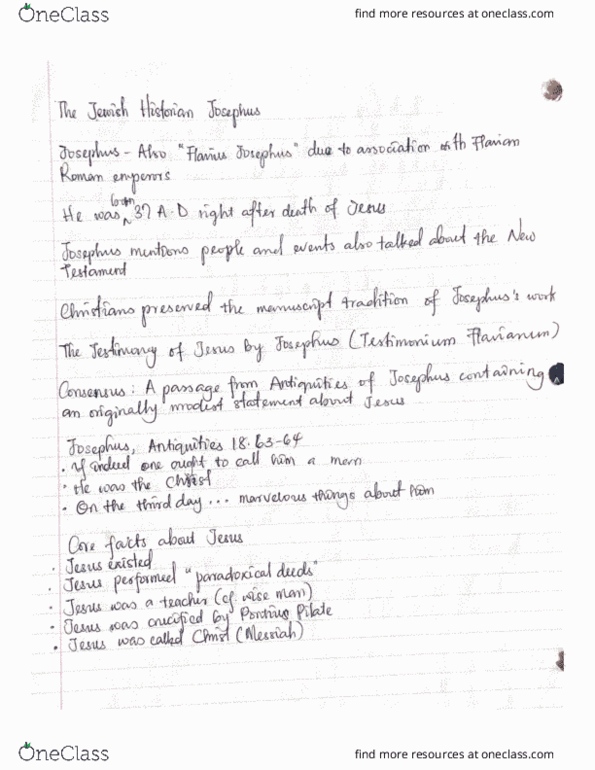 OneClass
find more resources at oneclass.com
The Jewish Historian Josephus
Josephus - Also "Flavius Josephus" due to association with Flavian
Roman emperors
born
He was ^ 37 A.D right after death of Jesus
Josephus mentions people and events also talked about the New
Testament
Christians preserved the manuscript tradition of Josephus's work
The Testimony of Jesus by Josephus (Testimonium Flavianum)
Consensus: A passage from Antiquities of Josephus containing
an originally modest statement about Jesus
Josephus, Antiquities 18.63-64
• If indeed one ought to call him a man
• He was the Christ
• On the third day ... marvelous things about him
Core facts about Jesus
• Jesus existed
• Jesus performed "paradoxical deeds"
• Jesus was a teacher (cf. wise man)
• Jesus was crucified by Pontius Pilate
• Jesus was called Christ (Messiah)
OneClass
find more resources at oneclass.com